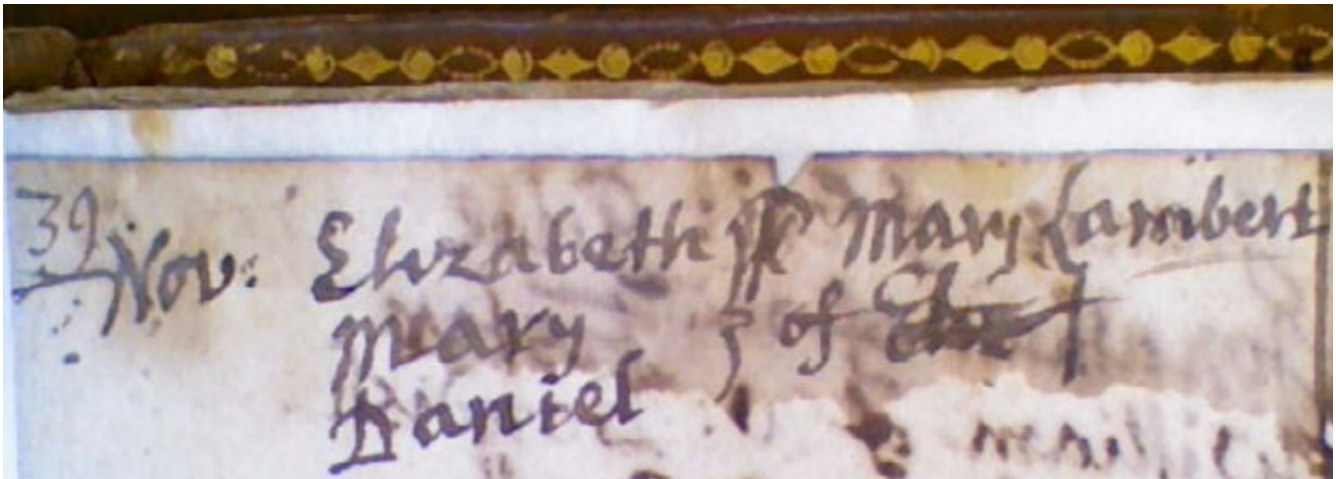 39
Nov. Elizabeth Mary Lambert
Mary of
Daniel